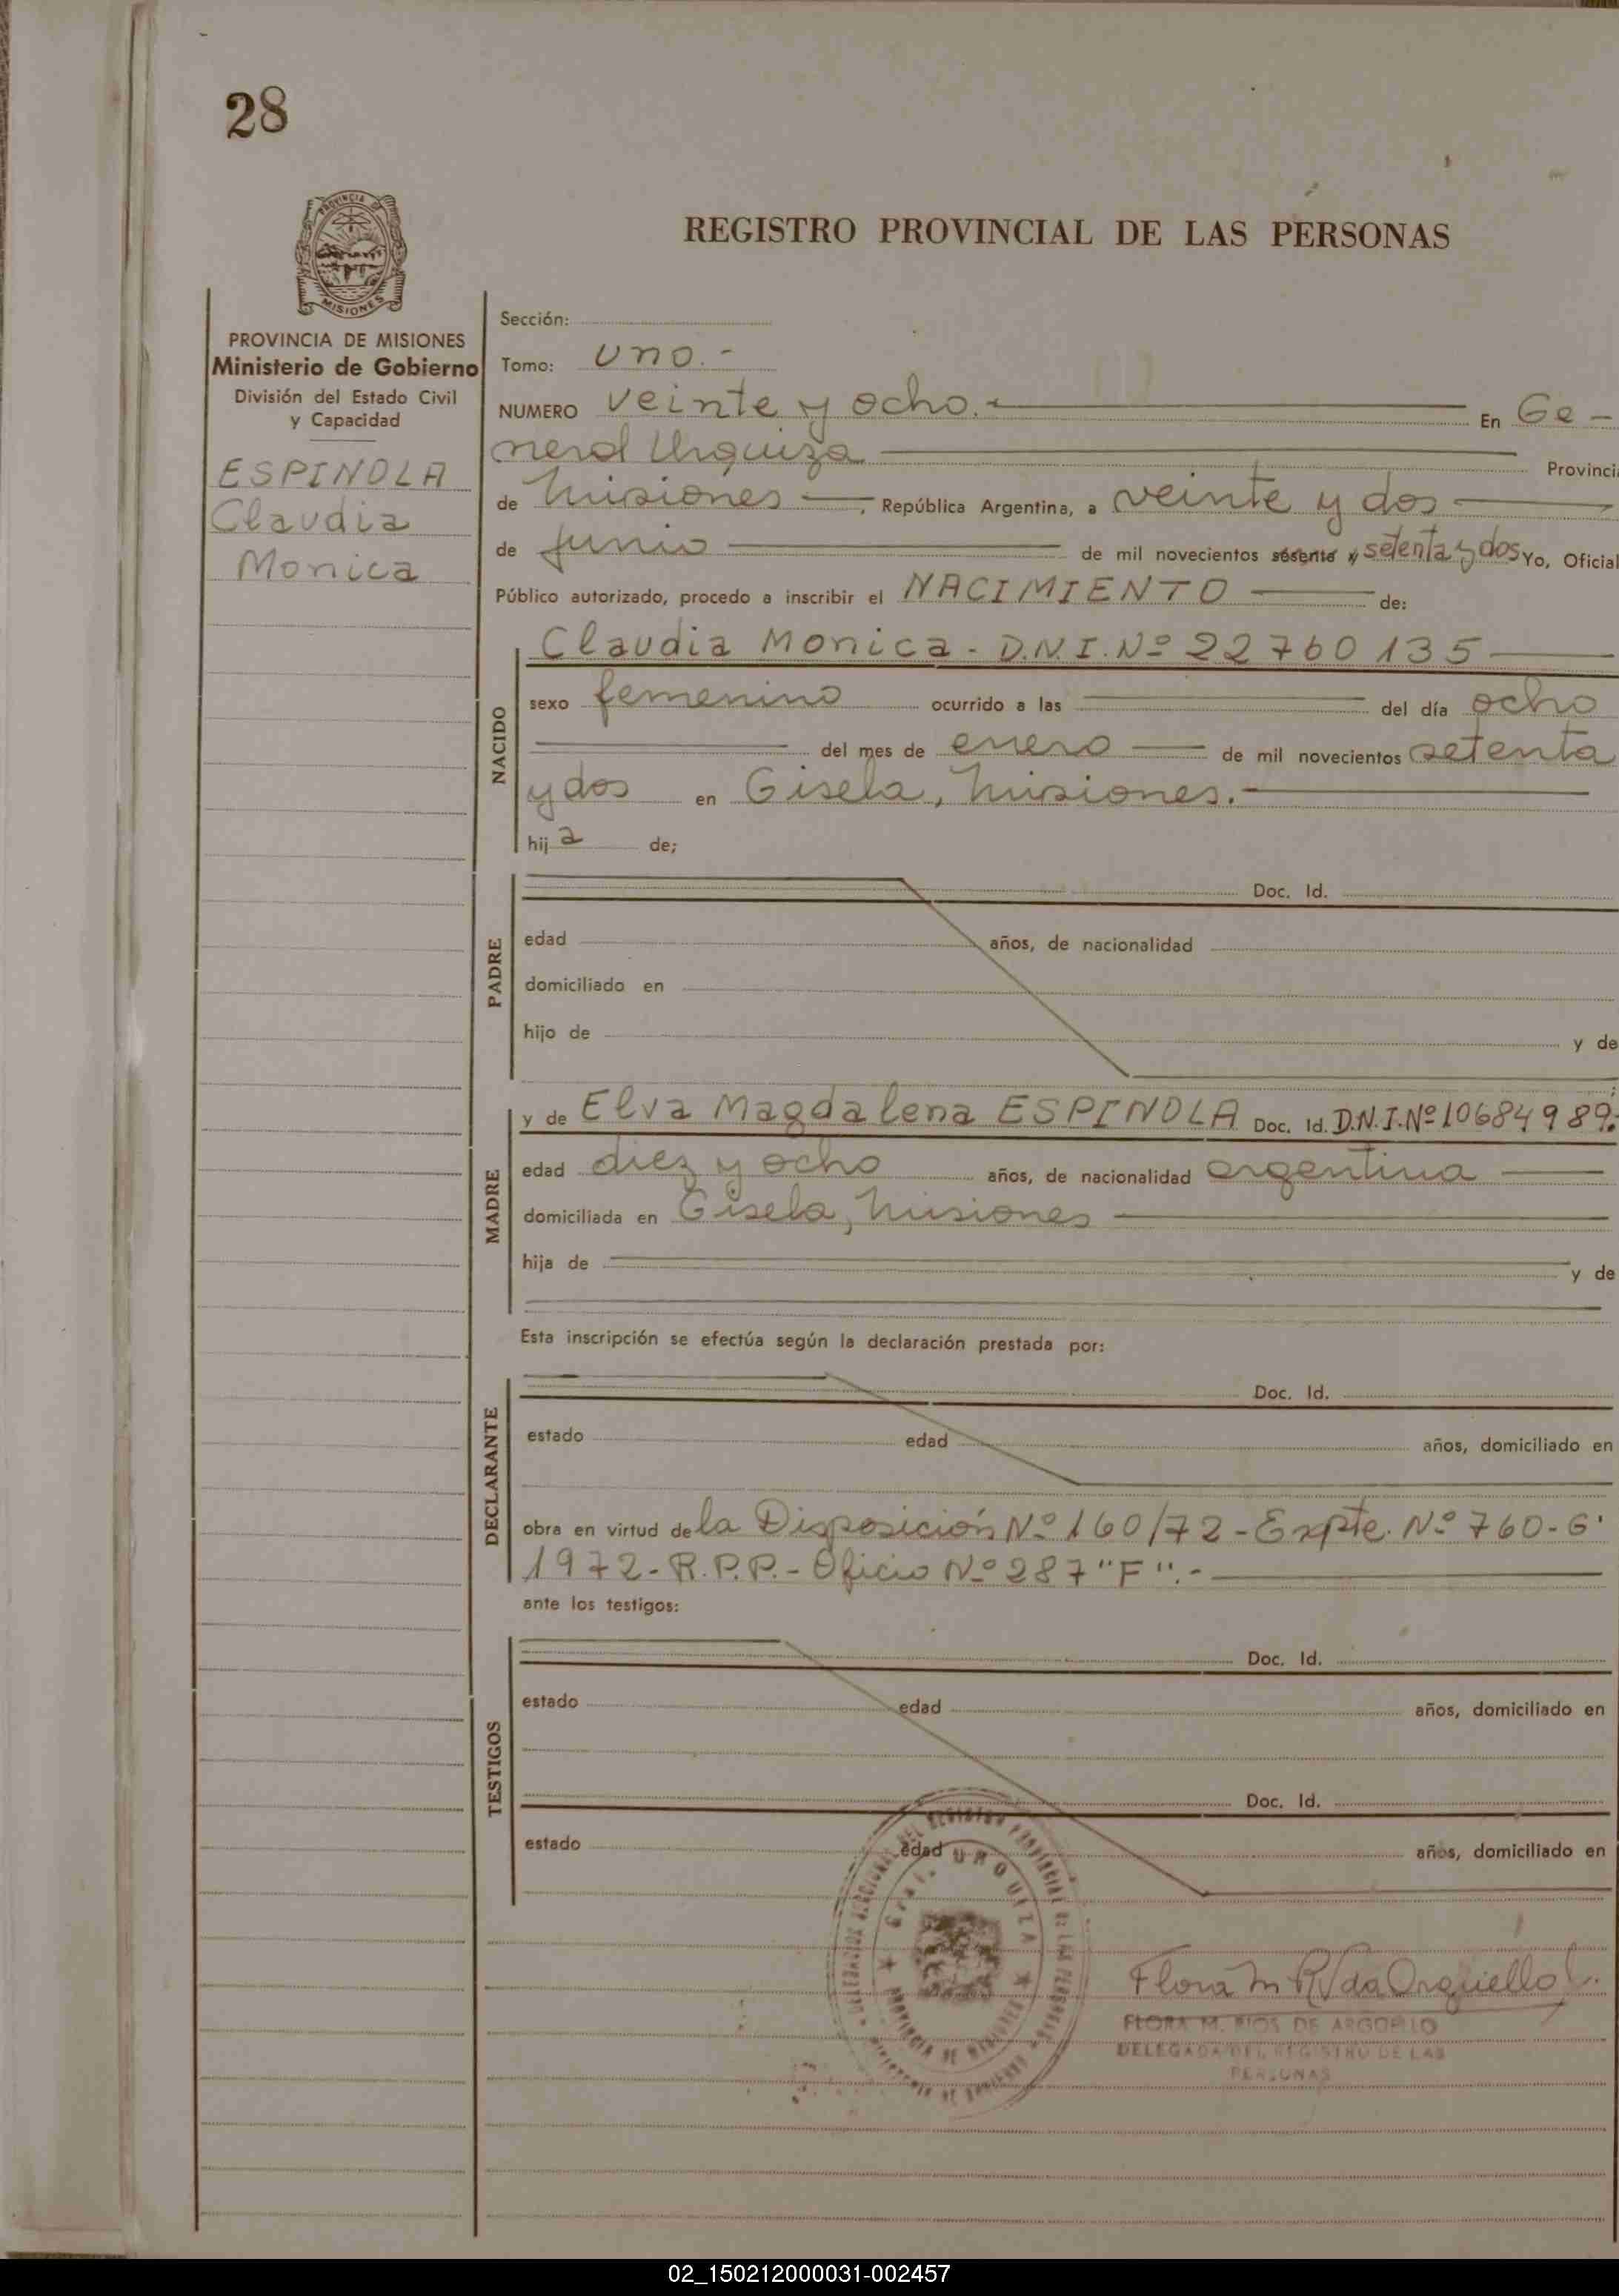 28
REGISTRO PROVINCIAL DE LAS PERSONAS
PROVINCIA DE MISIONES
Ministerio de Gobierno
División del Estado Civil
y Capacidad
ESPINOLA
Claudia
Monica
Sección:
Tomo: uno.-
NUMERO veinte y ocho.- En Ge-
neral Urquiza Provinci
de Misiones, República Argentina, a veinte y dos
de junio de mil novecientos sesenta y setenta y dos Yo, Oficial
Público autorizado, procedo a inscribir el NACIMIENTO de:
NACIDO
Claudia Monica - D.N.I. Nº 22760135
sexo femenino ocurrido a las del día ocho
del mes de enero de mil novecientos setenta
y dos en Gisela, Misiones.-
hija de;
PADRE
Doc. Id.
edad años, de nacionalidad
domiciliado en
hijo de y de
MADRE
y de Elva Magdalena ESPINOLA Doc. Id. D.N.I. Nº 10684989.
edad diez y ocho años, de nacionalidad argentina
domiciliada en Gisela, Misiones
hija de y de
Esta inscripción se efectúa según la declaración prestada por:
DECLARANTE
Doc. Id.
estado edad años, domiciliado en
obra en virtud de la Disposición Nº 160/72 - Expte. Nº 760-G'
1972 - R.P.P. - Oficio Nº 287 "F".-
ante los testigos:
TESTIGOS
Doc. Id.
estado edad años, domiciliado en
Doc. Id.
estado edad años, domiciliado en
Gral. URQUIZA
PROVINCIA DE MISIONES
Flora M R Vda Argüello
FLORA M. RIOS DE ARGUELLO
DELEGADA DEL REGISTRO DE LAS
PERSONAS
02_150212000031-002457